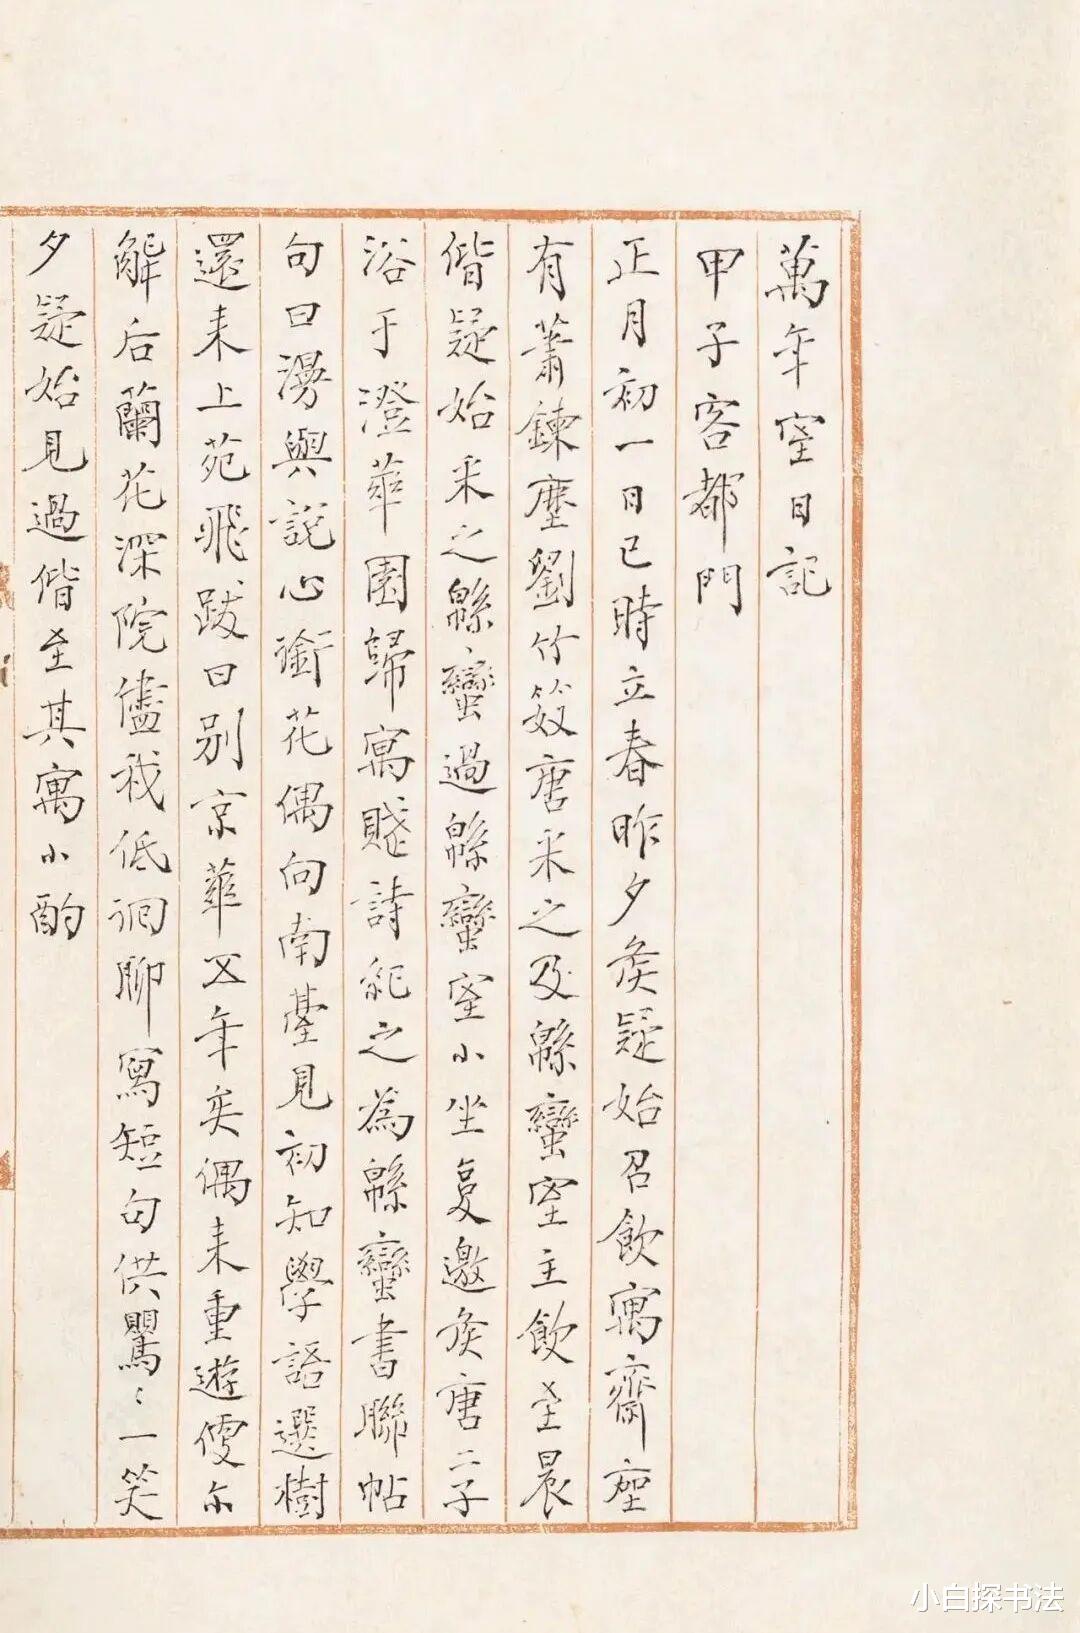 萬年室日記
甲子客都門
正月初一日已時立春昨夕矦疑始召飲寓齋座
有蕭鍊塵劉竹笯唐采之及緜蠻室主飲至晨
偕疑始采之緜蠻過緜蠻室小坐复邀矦唐二子
浴于澄華園歸寓賤詩紀之為緜蠻書聯帖
句曰漫與說心銜花偶向南臺見初知學語選樹
還来上苑飛跋曰别京華五年矣偶来重遊倐尔
解后蘭花深院儘我低徊聊寫短句供鸎〻一笑
夕疑始見過偕至其寓小酌
小白探书法